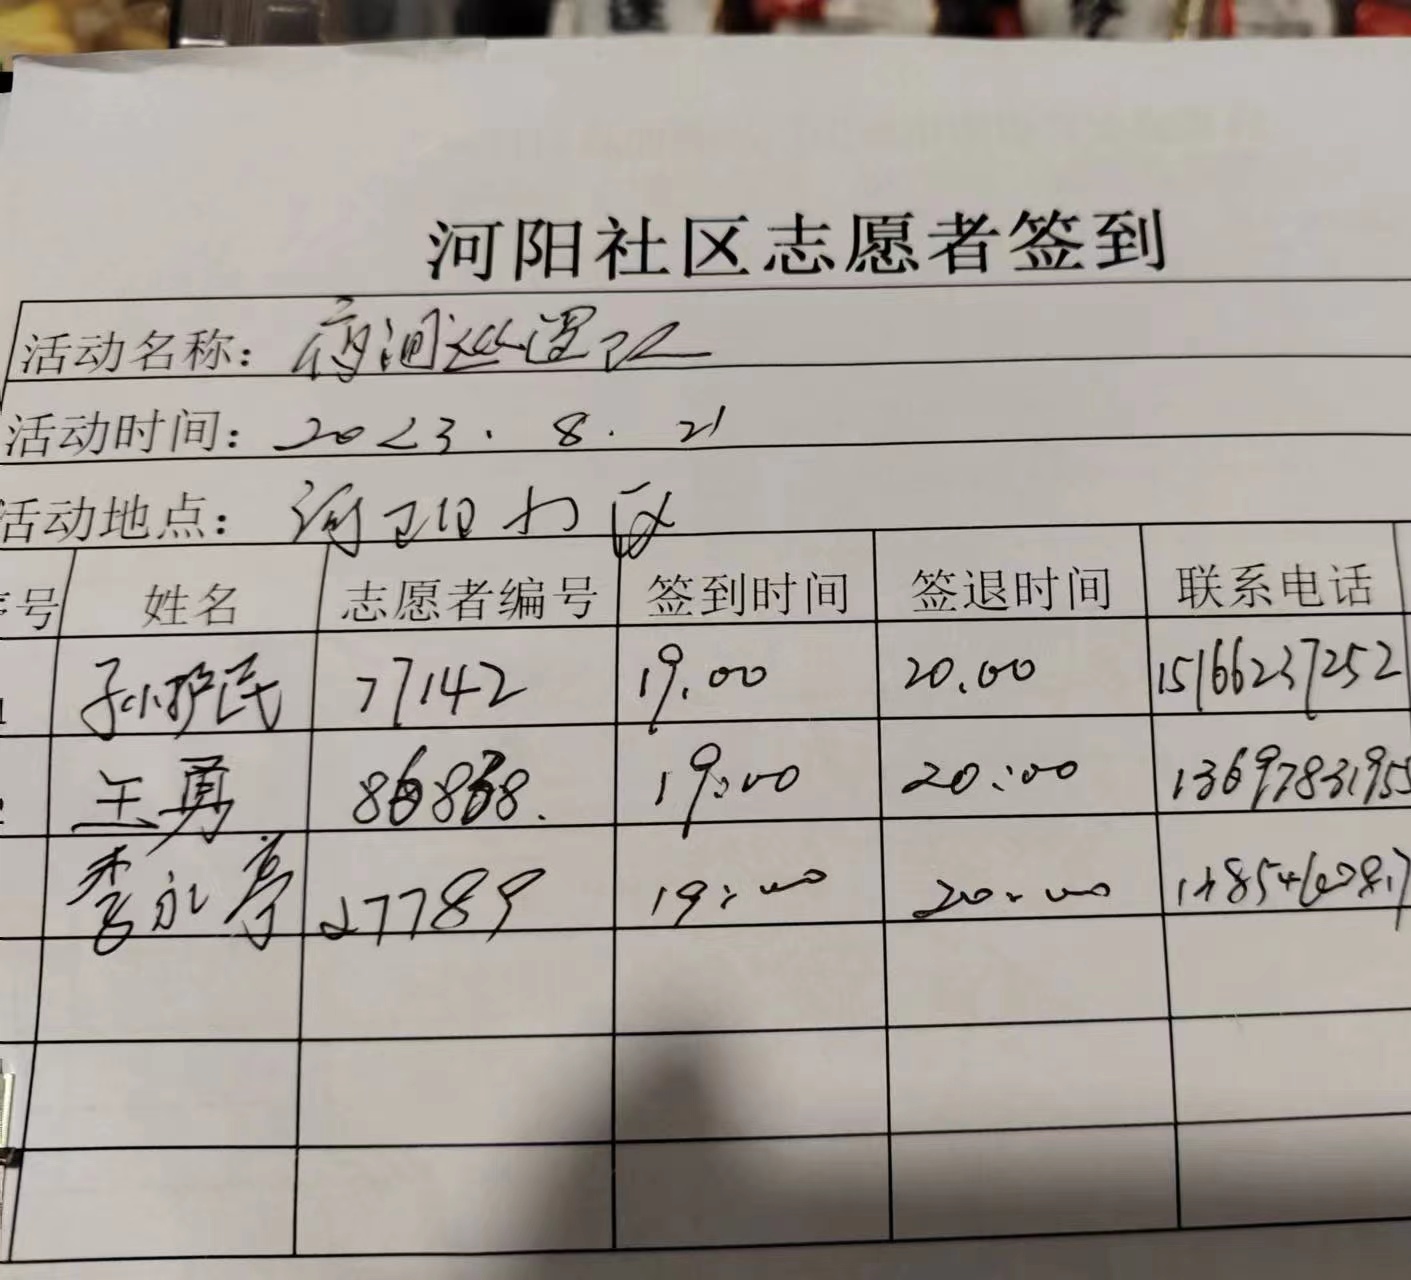 河阳社区志愿者签到
活动名称：夜间巡逻队
活动时间：2023.8.21
活动地点：河阳社区
序号 姓名 志愿者编号 签到时间 签退时间 联系电话
1 孙护民 77142 19.00 20.00 15166237252
2 王勇 19:00 20:00 13697831955
李永亭 27789 19:00 20:00